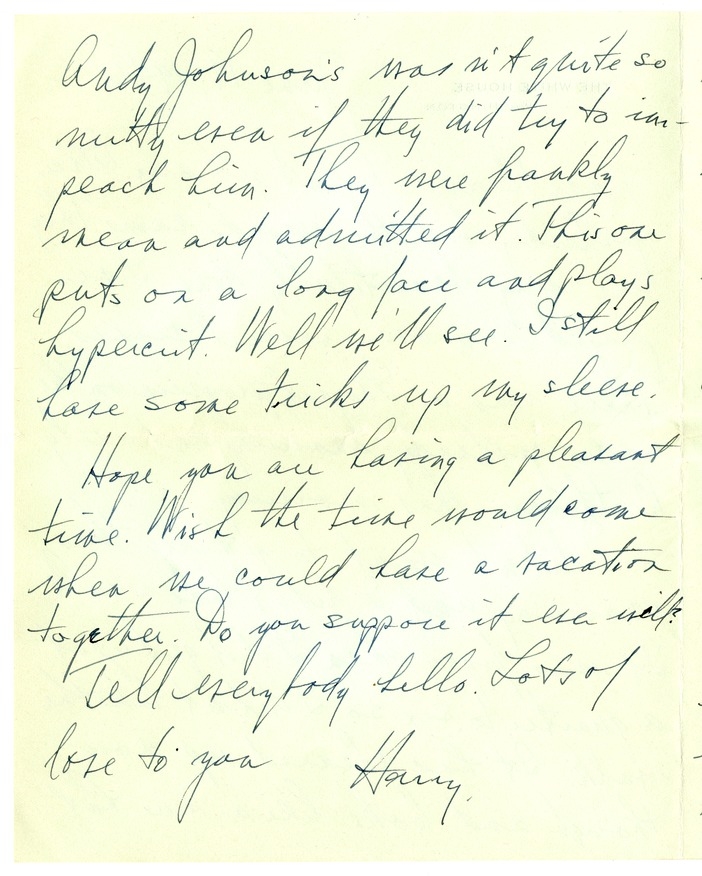 Andy Johnson's was n't quite so
nutty even if they did try to im-
peach him. They were frankly
mean and admitted it. This one
puts on a long face and plays
hypercrit. Well we'll see. I still
have some tricks up my sleeve.
Hope you are having a pleasant
time. Wish the time would come
when we could have a vacation
together. Do you suppose it ever will?
Tell everybody hello. Lots of
love to you Harry.
THE WHITE HOUSE